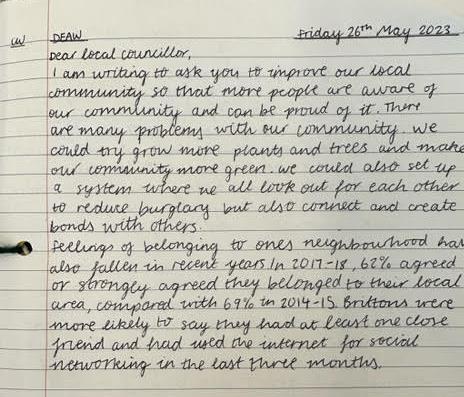 CW DEAW Friday 26th May 2023
Dear local councillor,
I am writing to ask you to improve our local
community so that more people are aware of
our community and can be proud of it. There
are many problems with our community. We
could try grow more plants and trees and make
our community more green. we could also set up
a system where we all look out for each other
to reduce burglary but also connect and create
bonds with others.
feelings of belonging to ones neighbourhood has
also fallen in recent years In 2017-18, 62% agreed
or strongly agreed they belonged to their local
area, compared with 69% in 2014-15. Brittons were
more likely to say they had at least one close
friend and had used the internet for social
networking in the last three months.